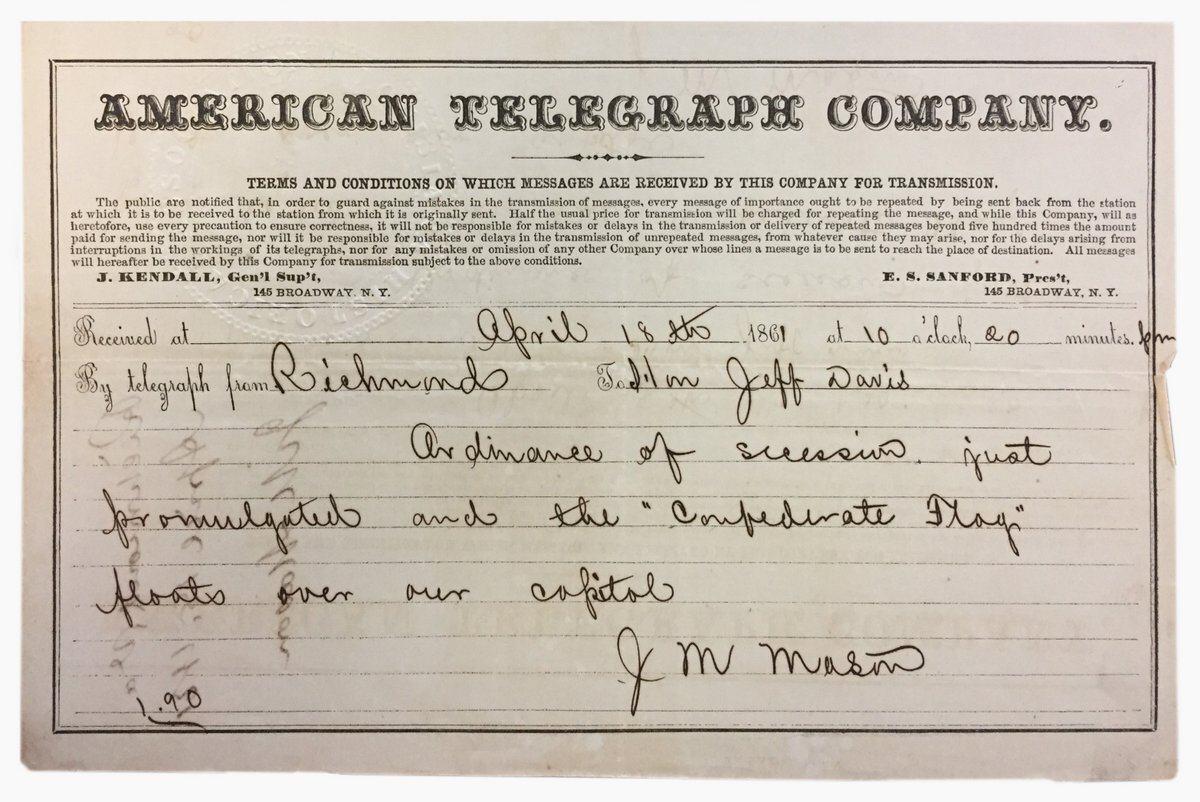 AMERICAN TELEGRAPH COMPANY.
TERMS AND CONDITIONS ON WHICH MESSAGES ARE RECEIVED BY THIS COMPANY FOR TRANSMISSION.
The public are notified that, in order to guard against mistakes in the transmission of messages, every message of importance ought to be repeated by being sent back from the station
at which it is to be received to the station from which it is originally sent. Half the usual price for transmission will be charged for repeating the message, and while this Company, will as
heretofore, use every precaution to ensure correctness, it will not be responsible for mistakes or delays in the transmission or delivery of repeated messages beyond five hundred times the amount
paid for sending the message, nor will it be responsible for mistakes or delays in the transmission of unrepeated messages, from whatever cause they may arise, nor for the delays arising from
interruptions in the workings of its telegraphs, nor for any mistakes or omission of any other Company over whose lines a message is to be sent to reach the place of destination. All messages
will hereafter be received by this Company for transmission subject to the above conditions.
J. KENDALL, Gen'l Sup't, E. S. SANFORD, Pres't,
145 BROADWAY. N. Y. 145 BROADWAY, N. Y.
Received at April 18th 1861 at 10 o'clock, 20 minutes. pm
By telegraph from Richmond To Hon Jeff Davis
Ordinance of secession just
promulgated and the "Confederate Flag"
floats over our capitol
J M Mason
1.90